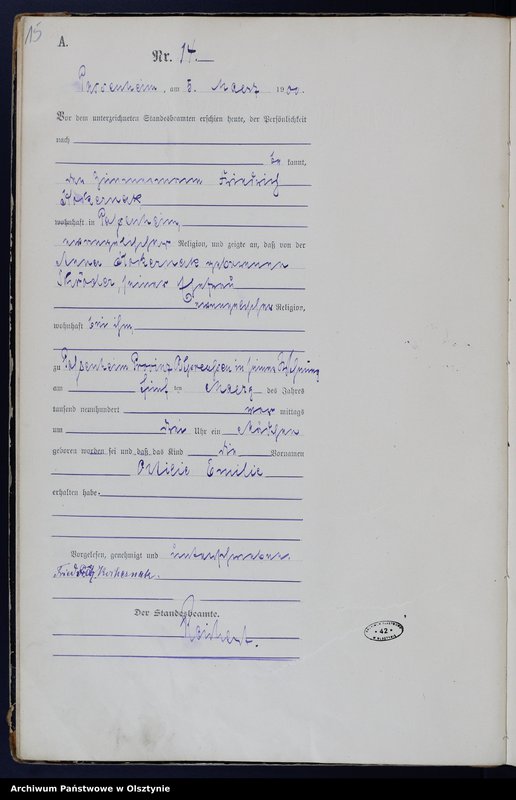 15
A.
Nr. 14.
Passenheim, am 8. Maerz 1900.
Vor dem unterzeichneten Standesbeamten erschien heute, der Persönlichkeit
nach
be kannt,
der Zimmermann Friedrich
wohnhaft in Passenheim
evangelischer Religion, und zeigte an, daß von der
Anna geborenen
seiner Ehefrau
evangelischer Religion,
wohnhaft bei ihm,
zu Passenheim Provinz Ostpreußen in seiner Wohnung
am fünf ten Maerz des Jahres
tausend neunhundert vor mittags
um drei Uhr ein Mädchen
geboren worden sei und daß das Kind die Vornamen
Ottilie Emilie
erhalten habe.
Vorgelesen, genehmigt und unterschrieben
Der Standesbeamte.
42
Archiwum Państwowe w Olsztynie